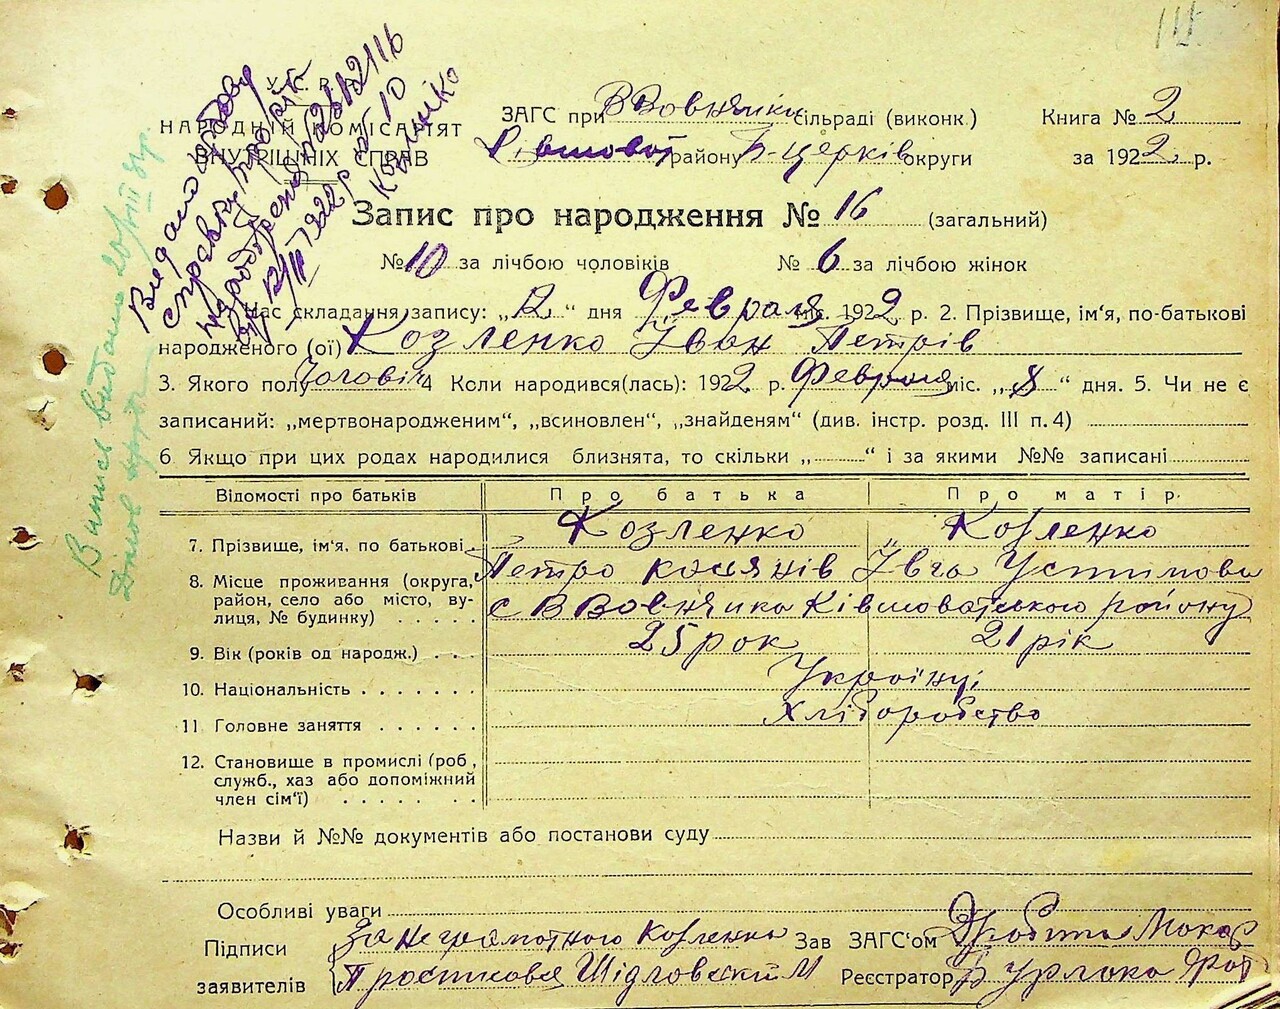 111
У. С. Р. Р.
НАРОДНІЙ КОМІСАРІЯТ
ВНУТРІШНІХ СПРАВ
ЗАГС при В Вовнянки сільраді (виконк.)
району Б-церків округи
Книга № 2
за 1922 р.
Запис про народження № 16 (загальний)
№ 10 за лічбою чоловіків № 6 за лічбою жінок
Час складання запису: „12“ дня Февраля міс. 1922 р. 2. Прізвище, ім'я, по-батькові
народженого (ої) Козленко Іван Петрів
3. Якого полу Чоловіч 4 Коли народився(лась): 1922 р. Февраля міс. „8“ дня. 5. Чи не є
записаний: „мертвонародженим“, „всиновлен“, „знайденям“ (див. інстр. розд. III п. 4)
6 Якщо при цих родах народилися близнята, то скільки „ “ і за якими №№ записані
Відомості про батьків Про батька Про матір
7. Прізвище, ім'я, по батькові Козленко Козленко
Петро Івга Устимова
8. Місце проживання (округа,
район, село або місто, вулиця, № будинку) с В Вовнянка району
9. Вік (років од народж.) 25 рок 21 рік
10. Національність Українці
11 Головне заняття Хліборобство
12. Становище в промислі (роб,
служб., хаз або допоміжний
член сім'ї)
Назви й №№ документів або постанови суду
Особливі уваги
Підписи За неграмотного Козленка Зав ЗАГС'ом
заявителів Шідловский Реєстратор Бурлака
Видано
справку про
12/III 1922 р.
Випись видано 20/VIII